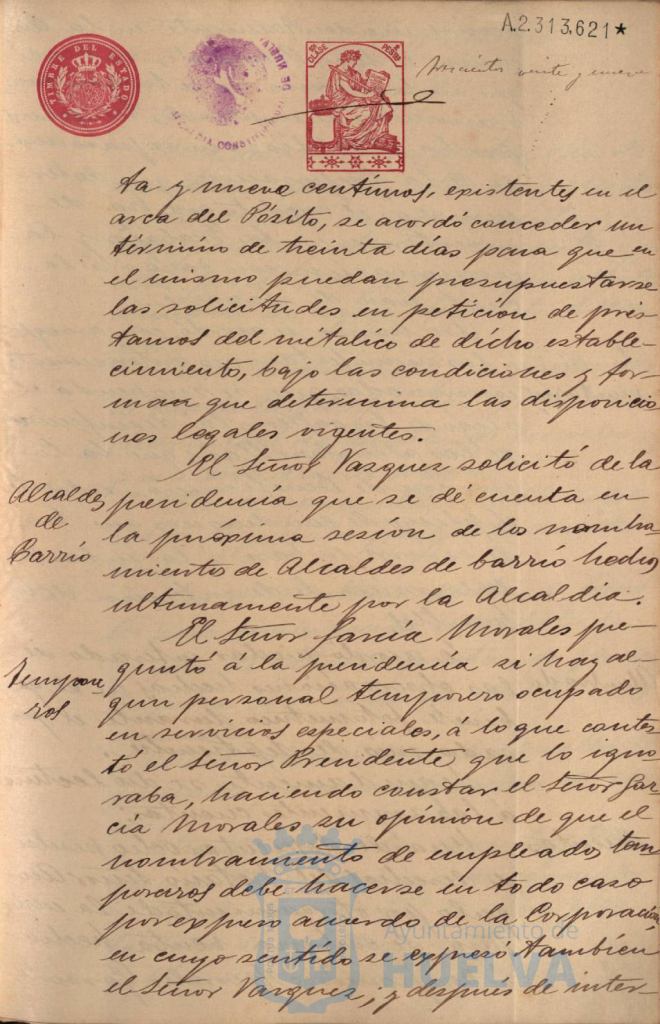 A.2.313.621★
TIMBRE DEL ESTADO
ALCALDIA CONSTITUCIONAL DE HUELVA
CLASE
PESETAS
veinte y nueve
ta y nueve centimos, existentes en el
arca del Pósito, se acordó conceder un
término de treinta días para que en
el mismo puedan presupuestarse
las solicitudes en petición de prés
tamos del métalico de dicho estable-
cimiento, bajo las condiciones y for-
ma que determina las disposicio
nes legales vigentes.
El Señor Vazquez solicitó de la
Alcaldes
de
Barrio
presidencia que se dé cuenta en
la próxima sesión de los nombra-
miento de Alcaldes de barrio hechos
ultimamente por la Alcaldia.
El Señor García Morales pre-
Tempore-
ros
guntó á la presidencia si hay al-
gun personal temporero ocupado
en servicios especiales, á lo que contes
tó el Señor Presidente que lo igno-
raba, haciendo constar el Señor Gar
cía Morales su opinión de que el
nombramiento de empleados tem
poreros debe hacerse en todo caso
por expreso acuerdo de la Corporación
en cuyo sentido se expresó también
el Señor Vazquez; y después de inter
Ayuntamiento de
HUELVA